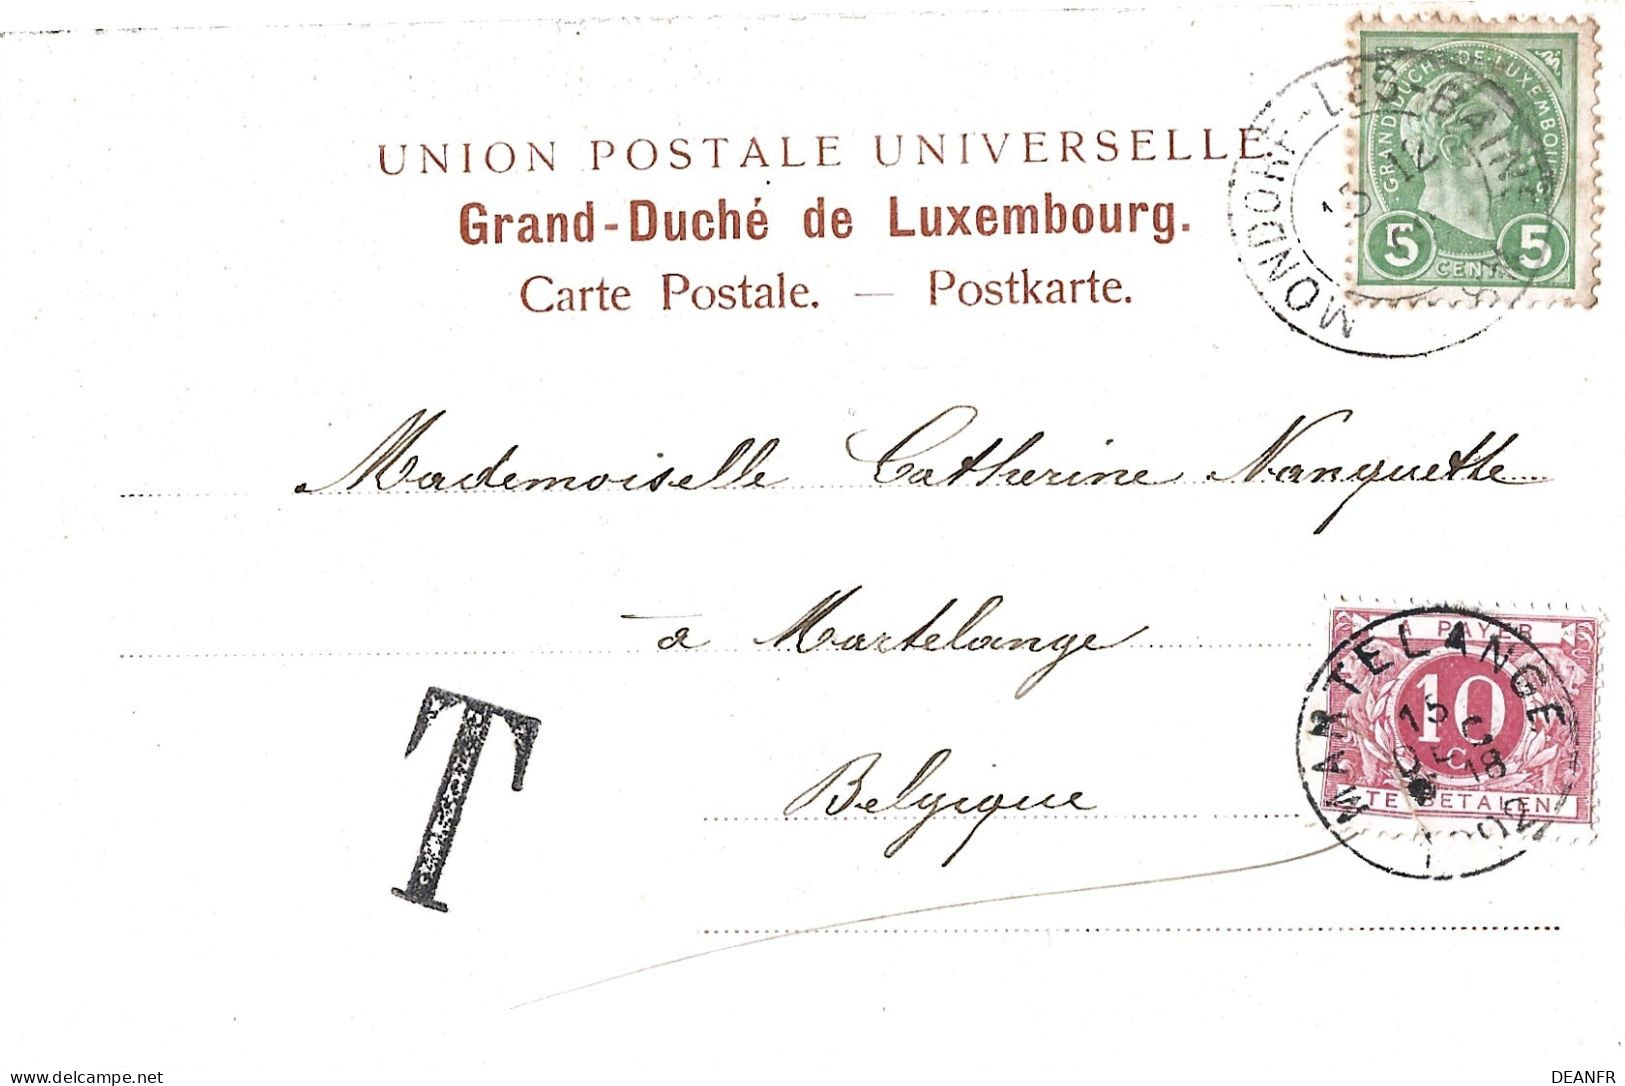 GRAND DUCHÉ DE LUXEMBOURG
5 CENT 5
MONDORF-LES-BAINS
12
UNION POSTALE UNIVERSELLE
Grand-Duché de Luxembourg.
Carte Postale. — Postkarte.
Mademoiselle Catherine Nanquette
à Martelange
Belgique
T
A PAYER
10
C
TE BETALEN
MARTELANGE
15
DEC
18
1902
www.delcampe.net
DEANFR